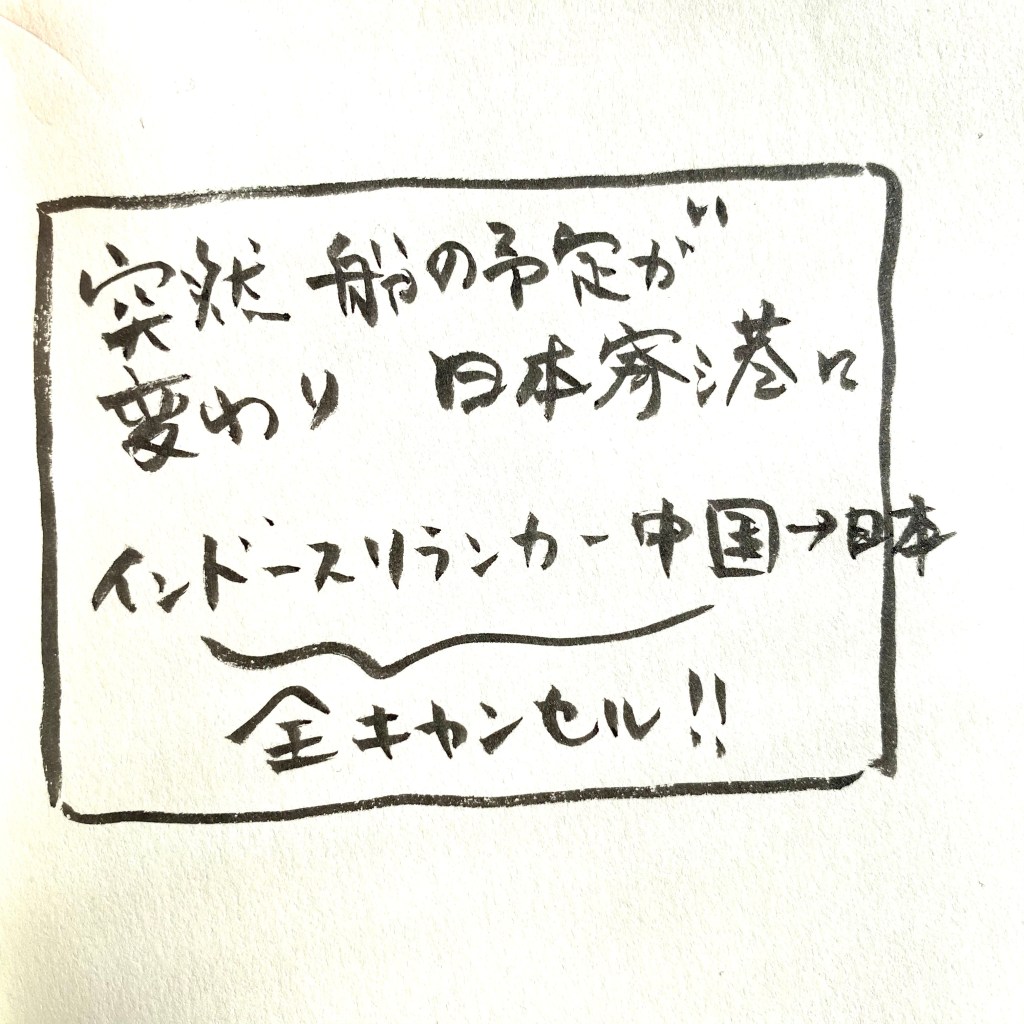 突然 船の予定が
変わり 日本寄港に
インドースリランカー中国→日本
全キャンセル!!